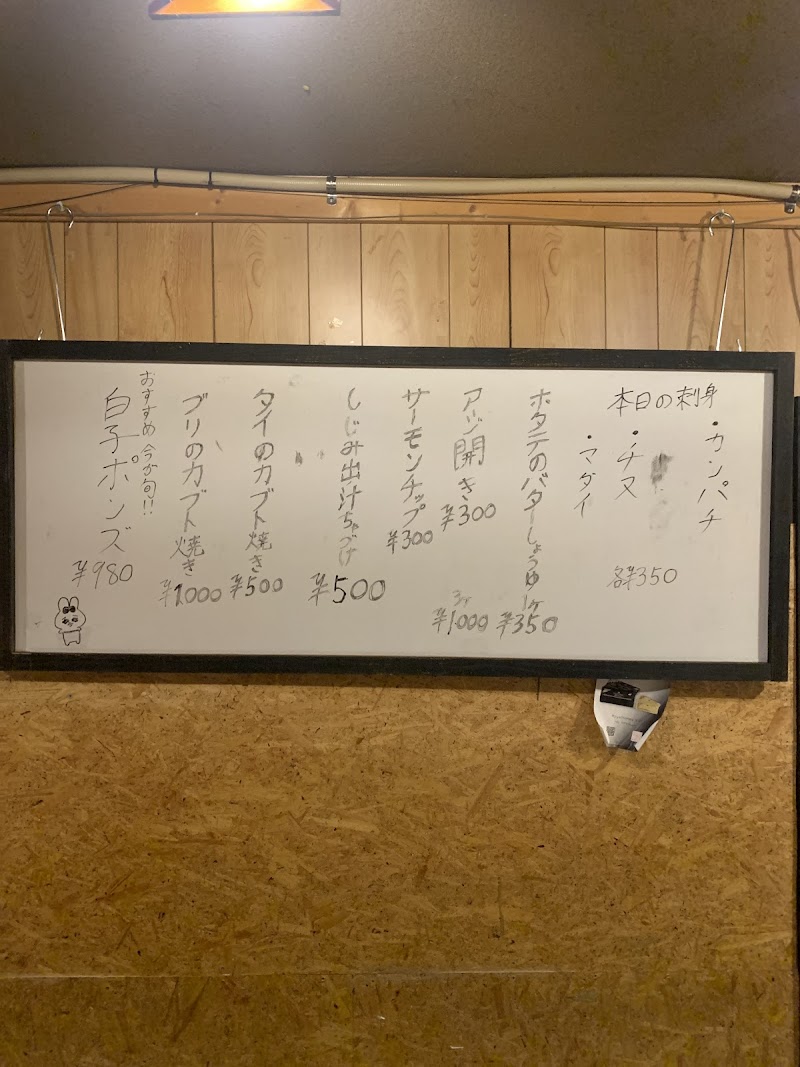 本日の刺身
・カンパチ
・チヌ
・マダイ
各¥350
ホタテのバターしょうゆ 1ケ
¥350
3ケ
¥1000
アジ開き
¥300
サーモンチップ
¥300
しじみ出汁ちゃづけ
¥500
タイのカブト焼き
¥500
ブリのカブト焼き
¥1000
おすすめ 今が旬!!
白子ポンズ
¥980